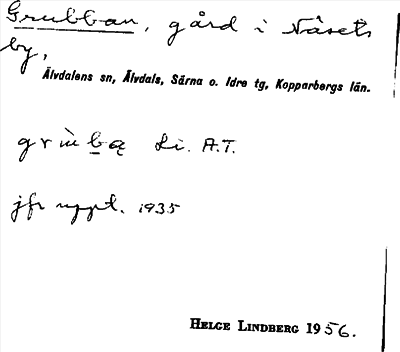 Grubban, gård i Näsets
by,
Älvdalens sn, Älvdals, Särna o. Idre tg, Kopparbergs län.
grùbą Li. A.T.
jfr uppt. 1935
HELGE LINDBERG 1956.